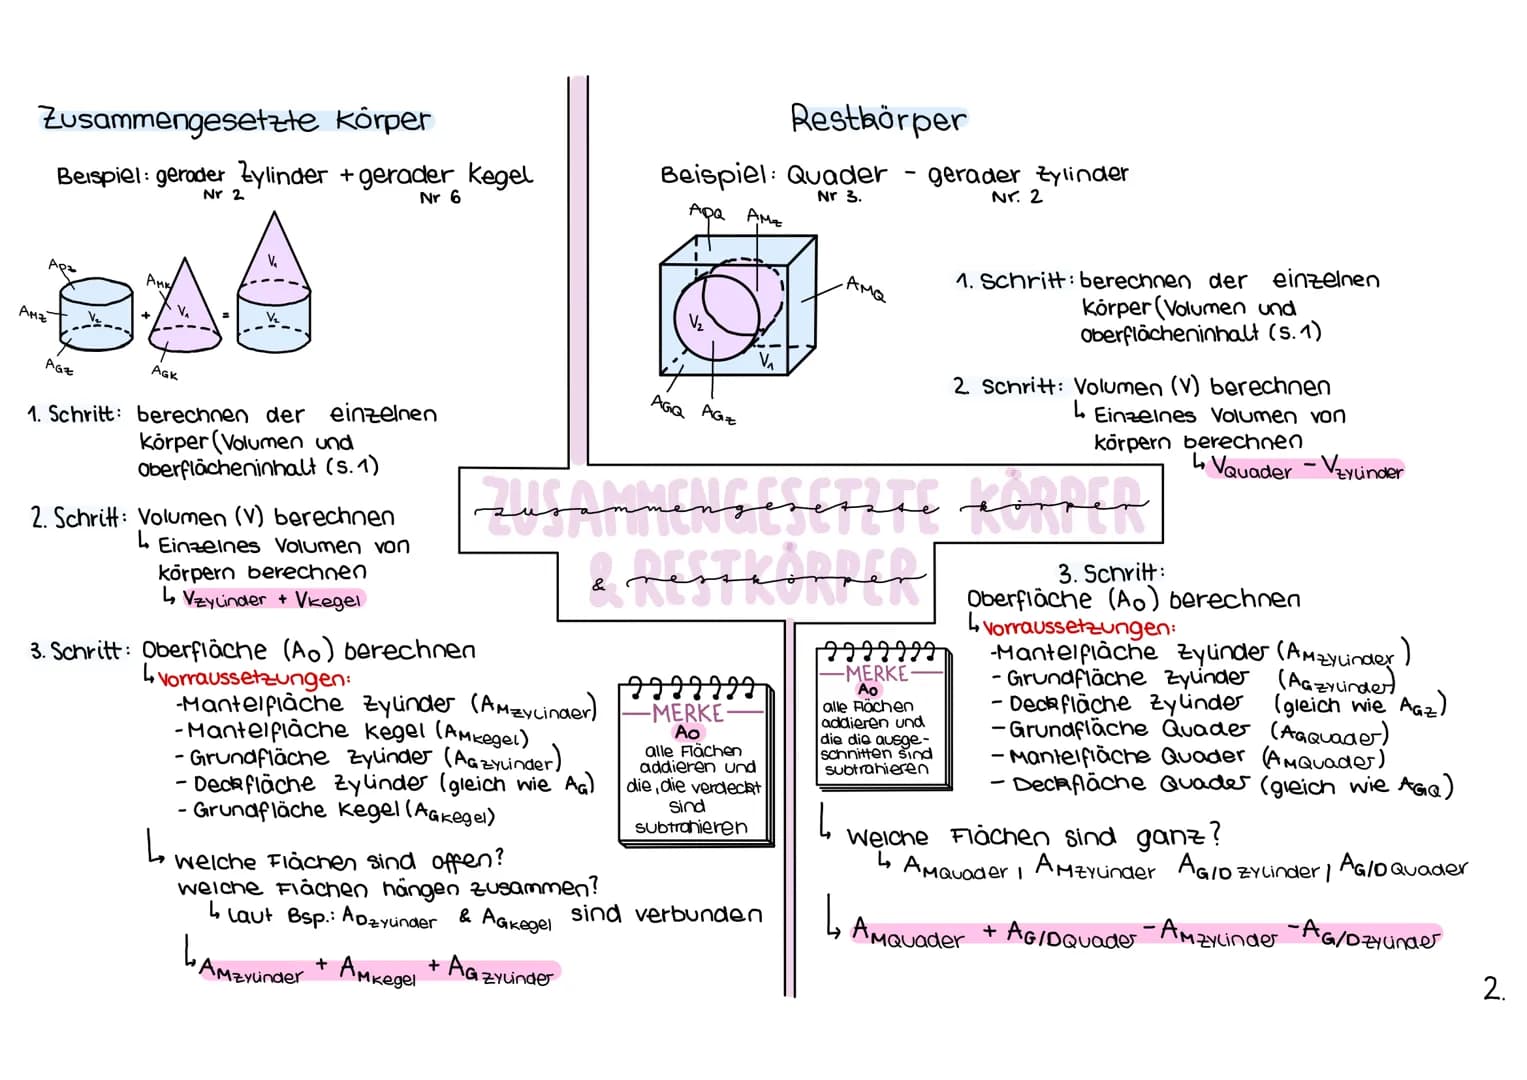 Zusammengesetzte Körper
Beispiel: gerader Zylinder + gerader Kegel
Nr 2
Nr 6
ADZ
AMZ
AGZ
V₂
+
AMK
V₁
AGK
=
V₁
V₂
1. Schritt: berechnen der einzelnen
Körper (Volumen und
Oberflächeninhalt (S. 1)
2. Schritt: Volumen (V) berechnen
↳ Einzelnes Volumen von
Körpern berechnen
↳ VZylinder + VKegel
3. Schritt: Oberfläche (AO) berechnen
↳ Vorraussetzungen:
-Mantelfläche Zylinder (AMZylinder)
-Mantelfläche Kegel (AMKegel)
- Grundfläche Zylinder (AGZylinder)
- Deckfläche Zylinder (gleich wie AG)
- Grundfläche Kegel (AGKegel)
↳ Welche Flächen sind offen?
Welche Flächen hängen zusammen?
↳ Laut Bsp.: ADZylinder & AGKegel sind verbunden
↳ AMZylinder + AMKegel + AGZylinder
MERKE
AO
alle Flächen
addieren und
die, die verdeckt
sind
subtrahieren
ZUSAMMENGESETZTE KÖRPER
zusammengesetzte körper
& RESTKÖRPER
& restkörper
Restkörper
Beispiel: Quader - gerader Zylinder
Nr 3.
Nr. 2
ADQ
AMZ
AMQ
V₂
V₁
AGQ
AGZ
1. Schritt: berechnen der einzelnen
Körper (Volumen und
Oberflächeninhalt (S. 1)
2 Schritt: Volumen (V) berechnen
↳ Einzelnes Volumen von
Körpern berechnen
↳ VQuader - VZylinder
3. Schritt:
Oberfläche (AO) berechnen
↳ Vorraussetzungen:
-Mantelfläche Zylinder (AMZylinder)
- Grundfläche Zylinder (AGZylinder)
- Deckfläche Zylinder (gleich wie AGZ)
- Grundfläche Quader (AGQuader)
- Mantelfläche Quader (AMQuader)
- Deckfläche Quader (gleich wie AGQ)
MERKE
AO
alle Flächen
addieren und
die die ausge-
schnitten sind
subtrahieren
↳ Welche Flächen sind ganz?
↳ AMQuader, AMZylinder AG/D Zylinder, AG/D Quader
↳ AMQuader + AG/DQuader - AMZylinder - AG/DZylinder
2.